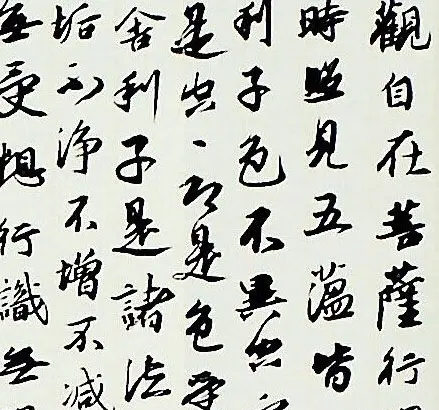 觀自在菩薩行
時照見五蘊皆
利子色不異空
是空〻即是色受
舍利子是諸法
垢不淨不增不減
無受想行識無